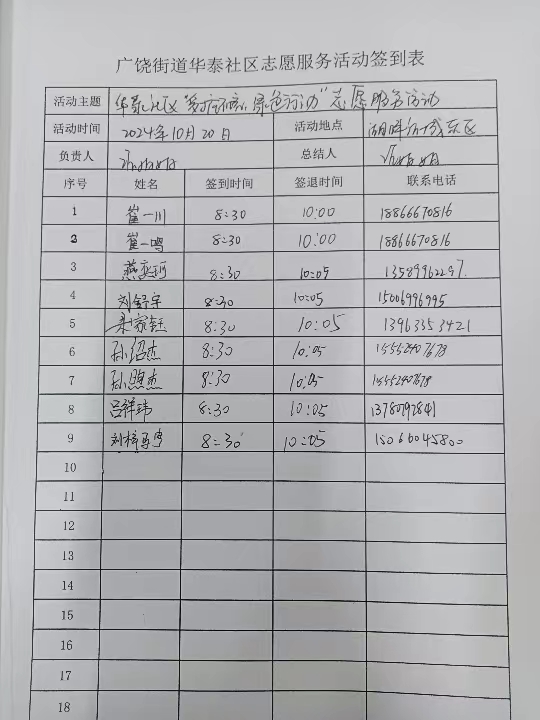 广饶街道华泰社区志愿服务活动签到表
活动主题 华泰社区 绿色行动”志愿服务活动
活动时间 2024年10月20日 活动地点 湖畔 东区
负责人 总结人
序号 姓名 签到时间 签退时间 联系电话
1 崔一川 8:30 10:00 18866670816
2 崔一鸣 8:30 10:00 18866670816
3 燕 8:30 10:05
4 刘舒宇 8:30 10:05 15006996995
5 家钰 8:30 10:05 13963353421
6 孙绍杰 8:30 10:05 15552907678
7 孙煦杰 8:30 10:05 15552907678
8 吕祥玮 8:30 10:05
9 刘梓 8:30 10:05 15066045800
10
11
12
13
14
15
16
17
18